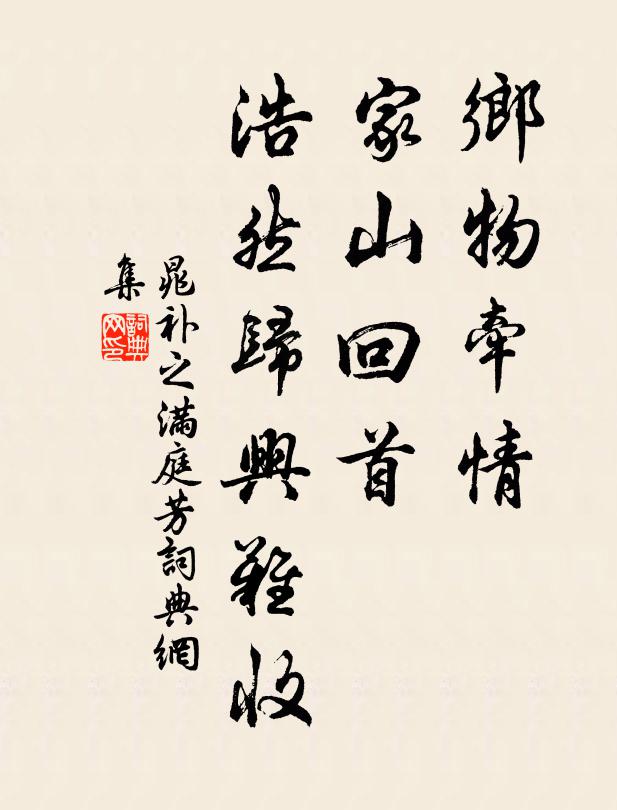 鄉物牽情
家山回首
浩然歸興難收
晁補之滿庭芳詞典網
集
詞典網印